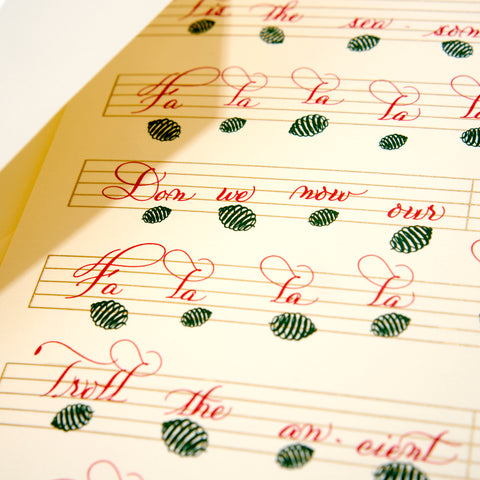 Tis the sea - son
Fa la la la la
Don we now our
Fa la la la
Troll the an - cient